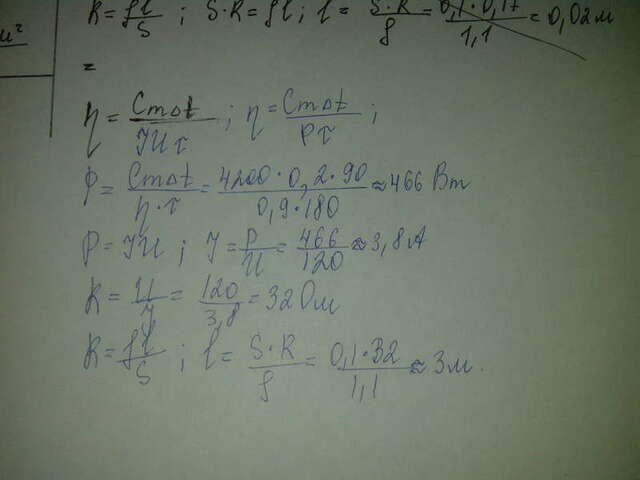 R = ρl/S ; S·R = ρl ; l = S·R/ρ = 0,1·0,17/1,1 = 0,02 м
м²
=
η = Cm∆t/IUτ ; η = Cm∆t/Pτ ;
P = Cm∆t/η·τ = 4200·0,2·90/0,9·180 ≈ 466 Вт
P = IU ; I = P/U = 466/120 ≈ 3,8 А
R = U/I = 120/3,8 = 32 Ом
R = ρl/S ; l = S·R/ρ = 0,1·32/1,1 ≈ 3 м.